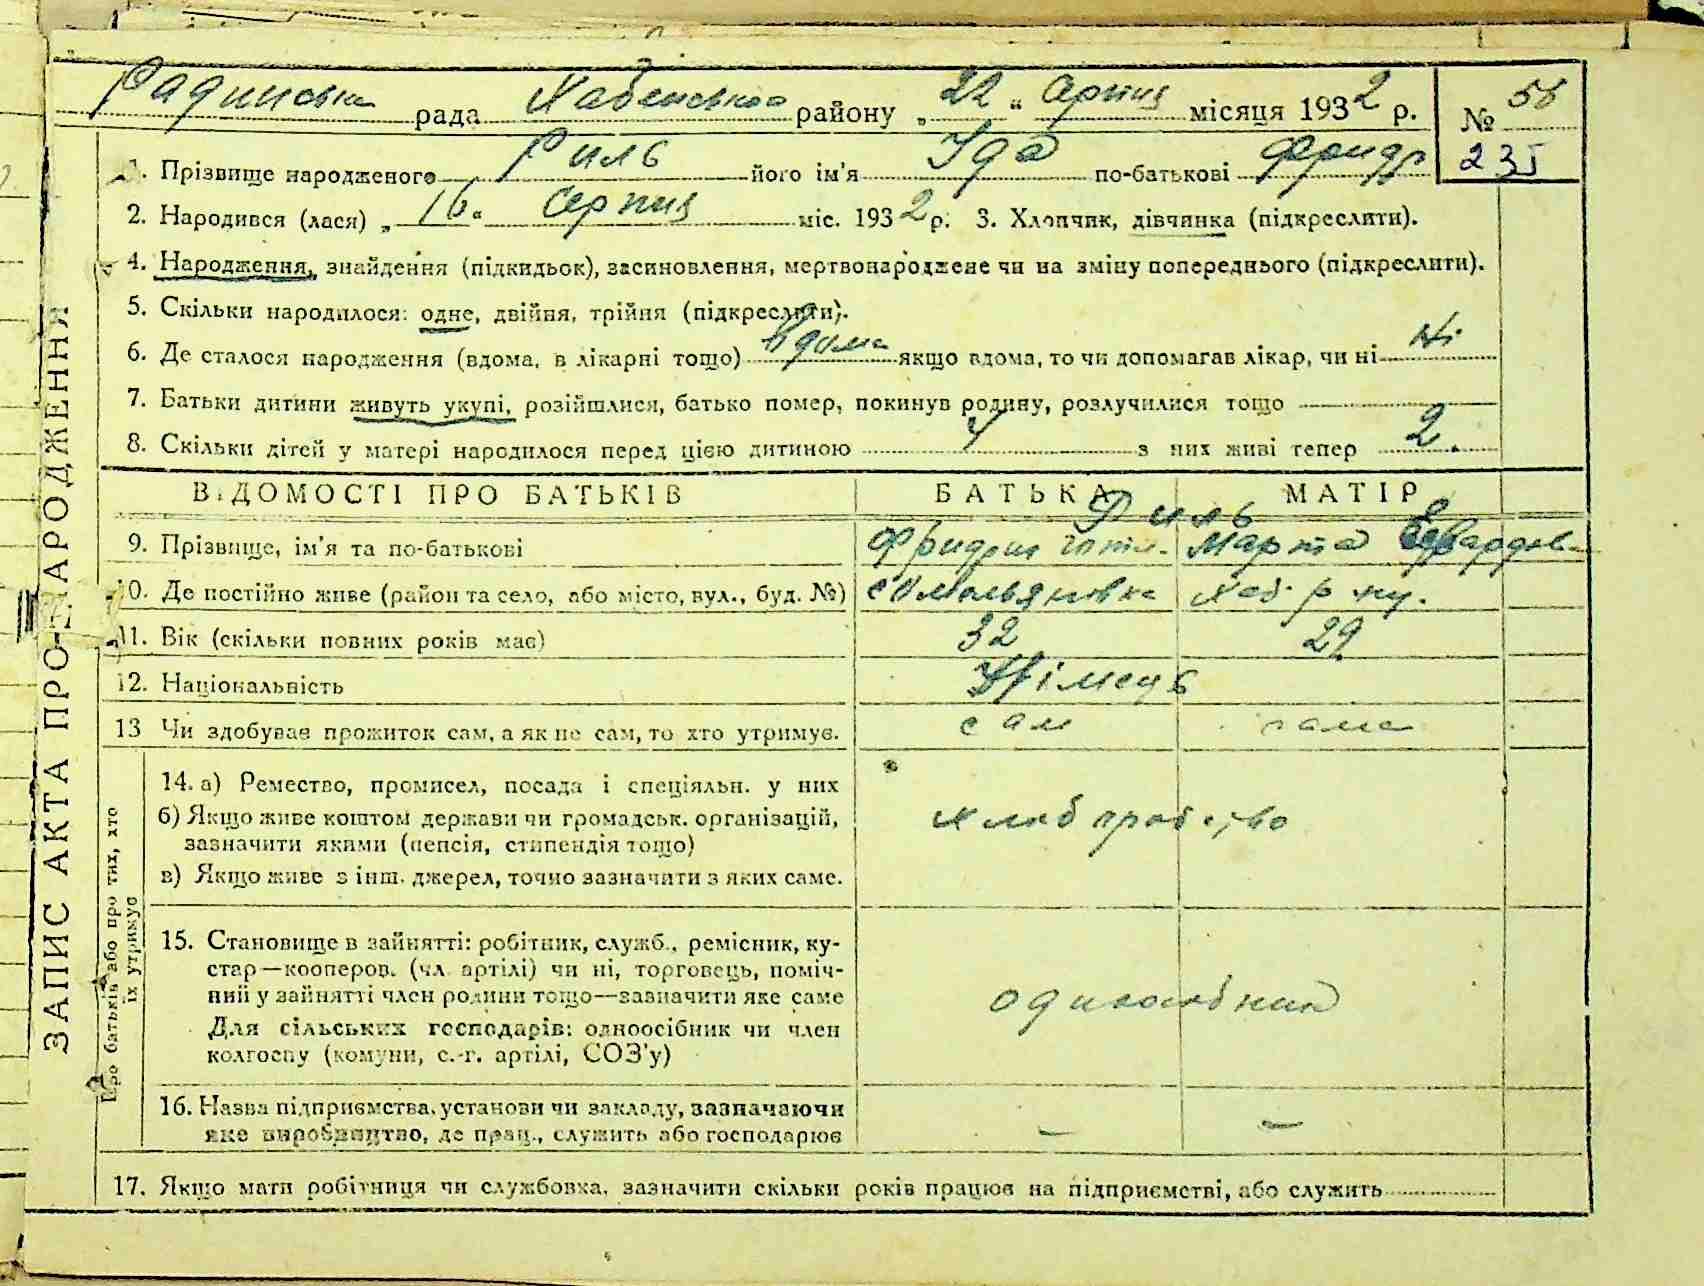 Радинська рада Хабенського району „22“ Серпня місяця 1932 р. № 58
235
1. Прізвище народженого Риль його ім'я Іда по-батькові Фридр
2. Народився (лася) „16“ Серпня міс. 1932 р. 3. Хлопчик, дівчинка (підкреслити).
4. Народження, знайдення (підкидьок), засиновлення, мертвонароджене чи на зміну попереднього (підкреслити).
5. Скільки народилося: одне, двійня, трійня (підкреслити).
6. Де сталося народження (вдома, в лікарні тощо) вдома якщо вдома, то чи допомагав лікар, чи ні Ні
7. Батьки дитини живуть укупі, розійшлися, батько помер, покинув родину, розлучилися тощо
8. Скільки дітей у матері народилося перед цією дитиною 4 з них живі тепер 2.
ВІДОМОСТІ ПРО БАТЬКІВ БАТЬКА МАТІР
Риль
9. Прізвище, ім'я та по-батькові Фридрих Готл. Марта Едвардов.
10. Де постійно живе (район та село, або місто, вул., буд. №) Хаб. р-ну.
11. Вік (скільки повних років має) 32 29
12. Національність Німець
13 Чи здобуває прожиток сам, а як не сам, то хто утримує. сам сама
14. а) Ремество, промисел, посада і спеціяльн. у них
б) Якщо живе коштом держави чи громадськ. організацій,
зазначити якими (пенсія, стипендія тощо)
хлібпробство
в) Якщо живе з інш. джерел, точно зазначити з яких саме.
15. Становище в зайнятті: робітник, служб., ремісник, ку-
стар—кооперов. (чл. артілі) чи ні, торговець, поміч-
ний у зайнятті член родини тощо—зазначити яке саме
одноосібник
Для сільських господарів: одноосібник чи член
колгоспу (комуни, с.-г. артілі, СОЗ'у)
16. Назва підприємства, установи чи закладу, зазначаючи
яке виробництво, де прац., служить або господарює — —
17. Якщо мати робітниця чи службовка, зазначити скільки років працює на підприємстві, або служить
ЗАПИС АКТА ПРО НАРОДЖЕННЯ
Про батьків або про тих, хто
їх утримує